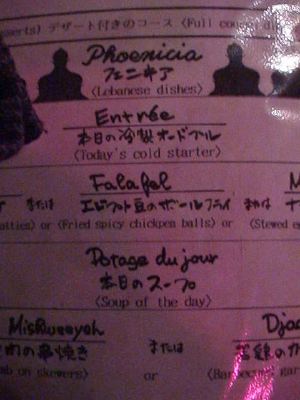 sserts) デザート付きのコース〈Full cou
Phoenicia
フェニキア
〈Lebanese dishes〉
Entrée
本日の冷製オードブル
〈Today's cold starter〉
Falafel M
または エジプト豆のボールフライ または ナ
atties〉 or 〈Fried spicy chickpen balls〉 or 〈Stewed e
Potage du jour
本日のスープ
〈Soup of the day〉
Mishweeyeh Djao
肉の串焼き または 若鶏のガ
mb on skewers〉 or 〈Barbecued gar